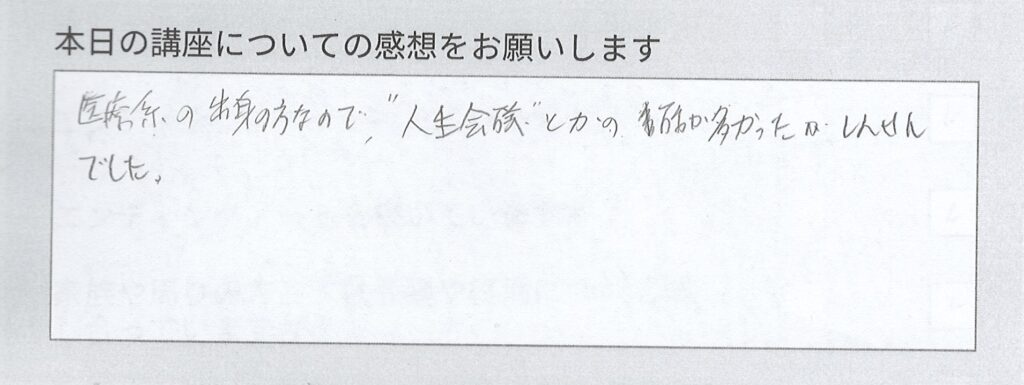 本日の講座についての感想をお願いします
医療系の出身の方なので、"人生会議"とかの話が多かったがしんせん
でした。